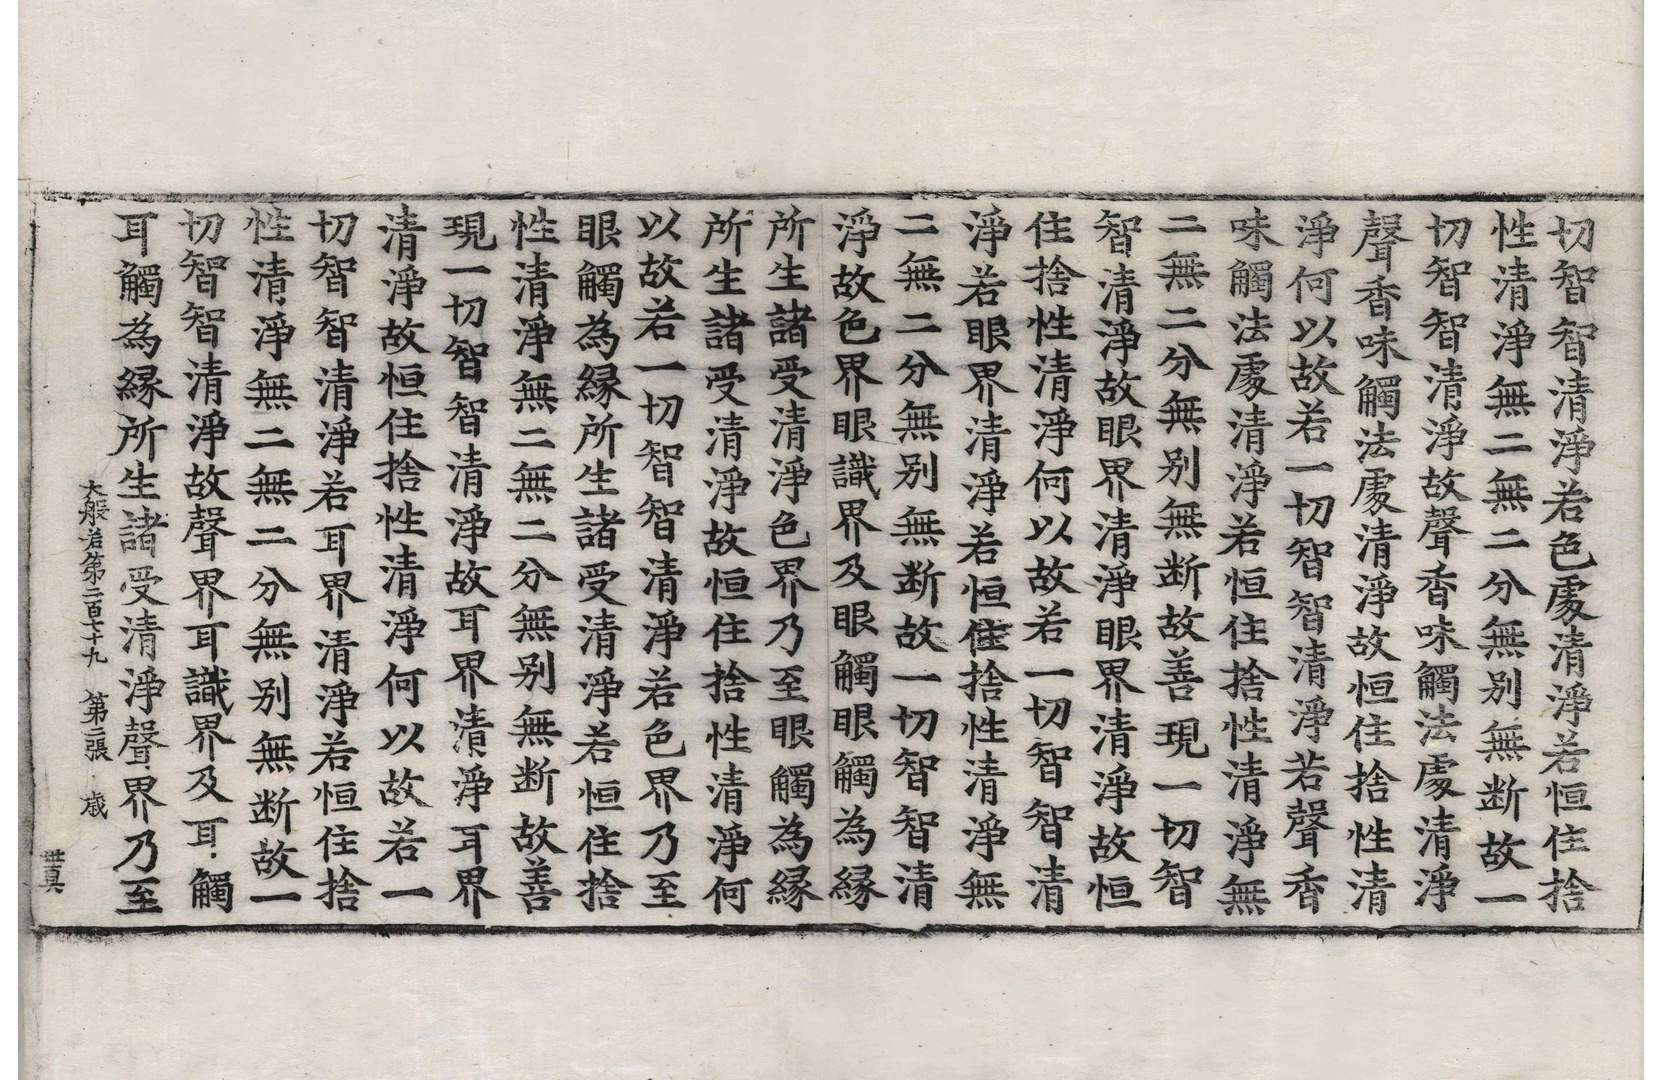 切智智清淨若色處清淨若恒住捨
性清淨無二無二分無别無断故一
切智智清淨故聲香味觸法處清淨
聲香味觸法處清淨故恒住捨性清
淨何以故若一切智智清淨若聲香
味觸法處清淨若恒住捨性清淨無
二無二分無别無断故善現一切智
智清淨故眼界清淨眼界清淨故恒
住捨性清淨何以故若一切智智清
淨若眼界清淨若恒住捨性清淨無
二無二分無别無断故一切智智清
淨故色界眼識界及眼觸眼觸為縁
所生諸受清淨色界乃至眼觸為縁
所生諸受清淨故恒住捨性清淨何
以故若一切智智清淨若色界乃至
眼觸為縁所生諸受清淨若恒住捨
性清淨無二無二分無别無断故善
現一切智智清淨故耳界清淨耳界
清淨故恒住捨性清淨何以故若一
切智智清淨若耳界清淨若恒住捨
性清淨無二無二分無别無断故一
切智智清淨故聲界耳識界及耳觸
耳觸為縁所生諸受清淨聲界乃至
大般若第二百七十九 第二張 歳
世真